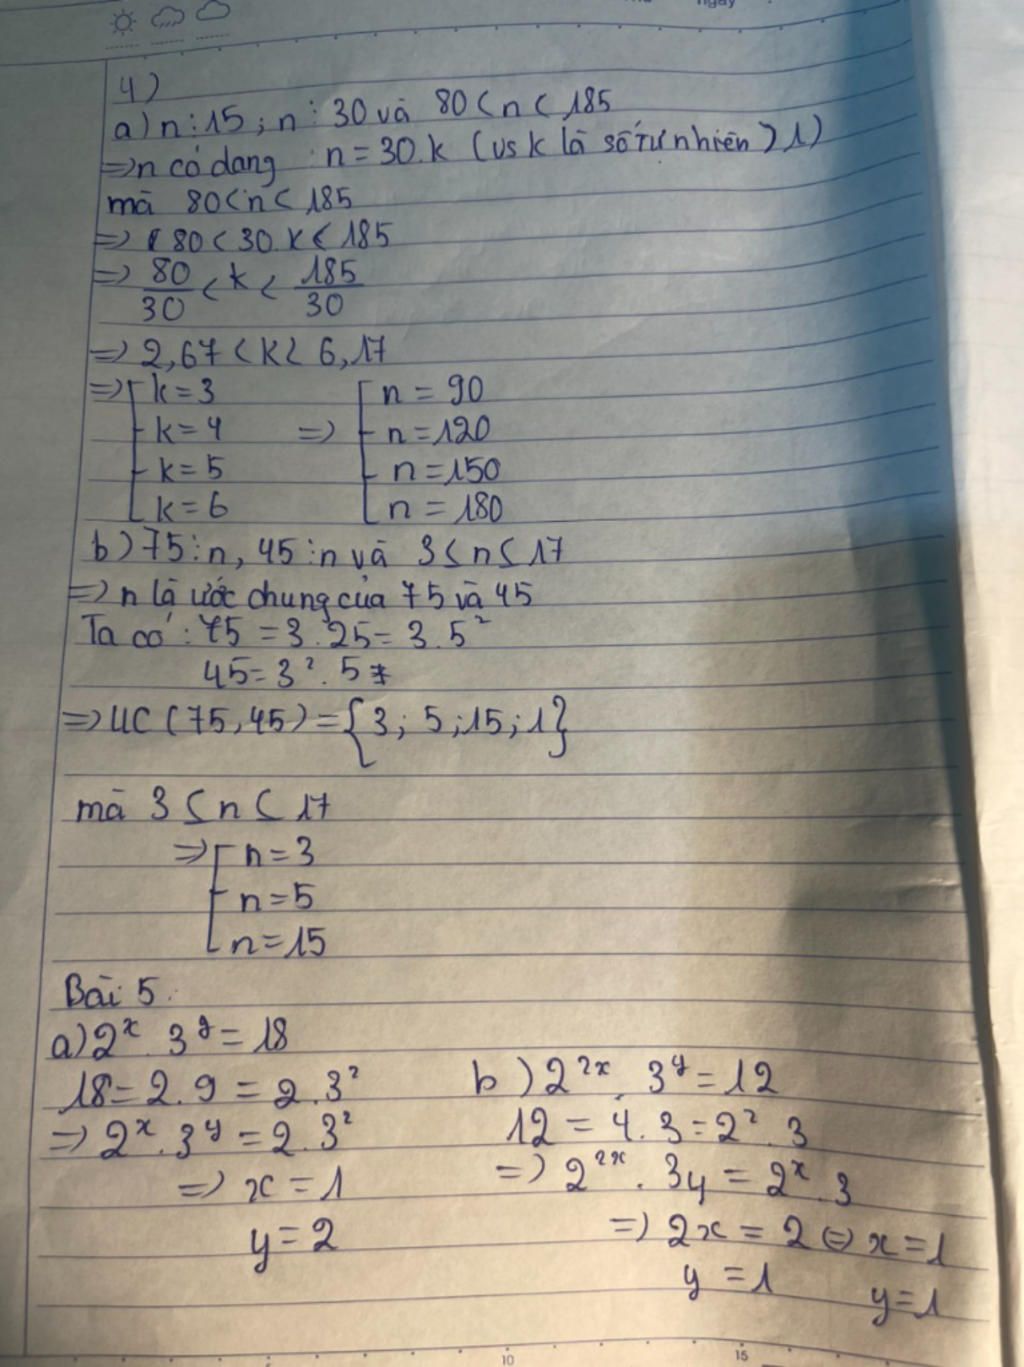 ngày
4)
a) n⋮15 ; n⋮30 và 80 < n < 185
=> n có dạng : n = 30.k (vs k là số tự nhiên > 1)
mà 80 < n < 185
=> 80 < 30.k < 185
=> 80/30 < k < 185/30
=> 2,67 < k < 6,17
=> [ k = 3 [ n = 90
k = 4 => n = 120
k = 5 n = 150
k = 6 n = 180
b) 75⋮n, 45⋮n và 3 ≤ n ≤ 17
=> n là ước chung của 75 và 45
Ta có : 75 = 3.25 = 3.5²
45 = 3².5
=> ƯC (75,45) = {3; 5; 15; 1}
mà 3 ≤ n ≤ 17
=> [ n = 3
n = 5
n = 15
Bài 5.
a) 2^x . 3^y = 18
18 = 2.9 = 2.3²
=> 2^x . 3^y = 2.3²
=> x = 1
y = 2
b) 2^2x . 3^y = 12
12 = 4.3 = 2².3
=> 2^2x . 3y = 2^x.3
=> 2x = 2 <=> x = 1
y = 1 y = 1
10 15